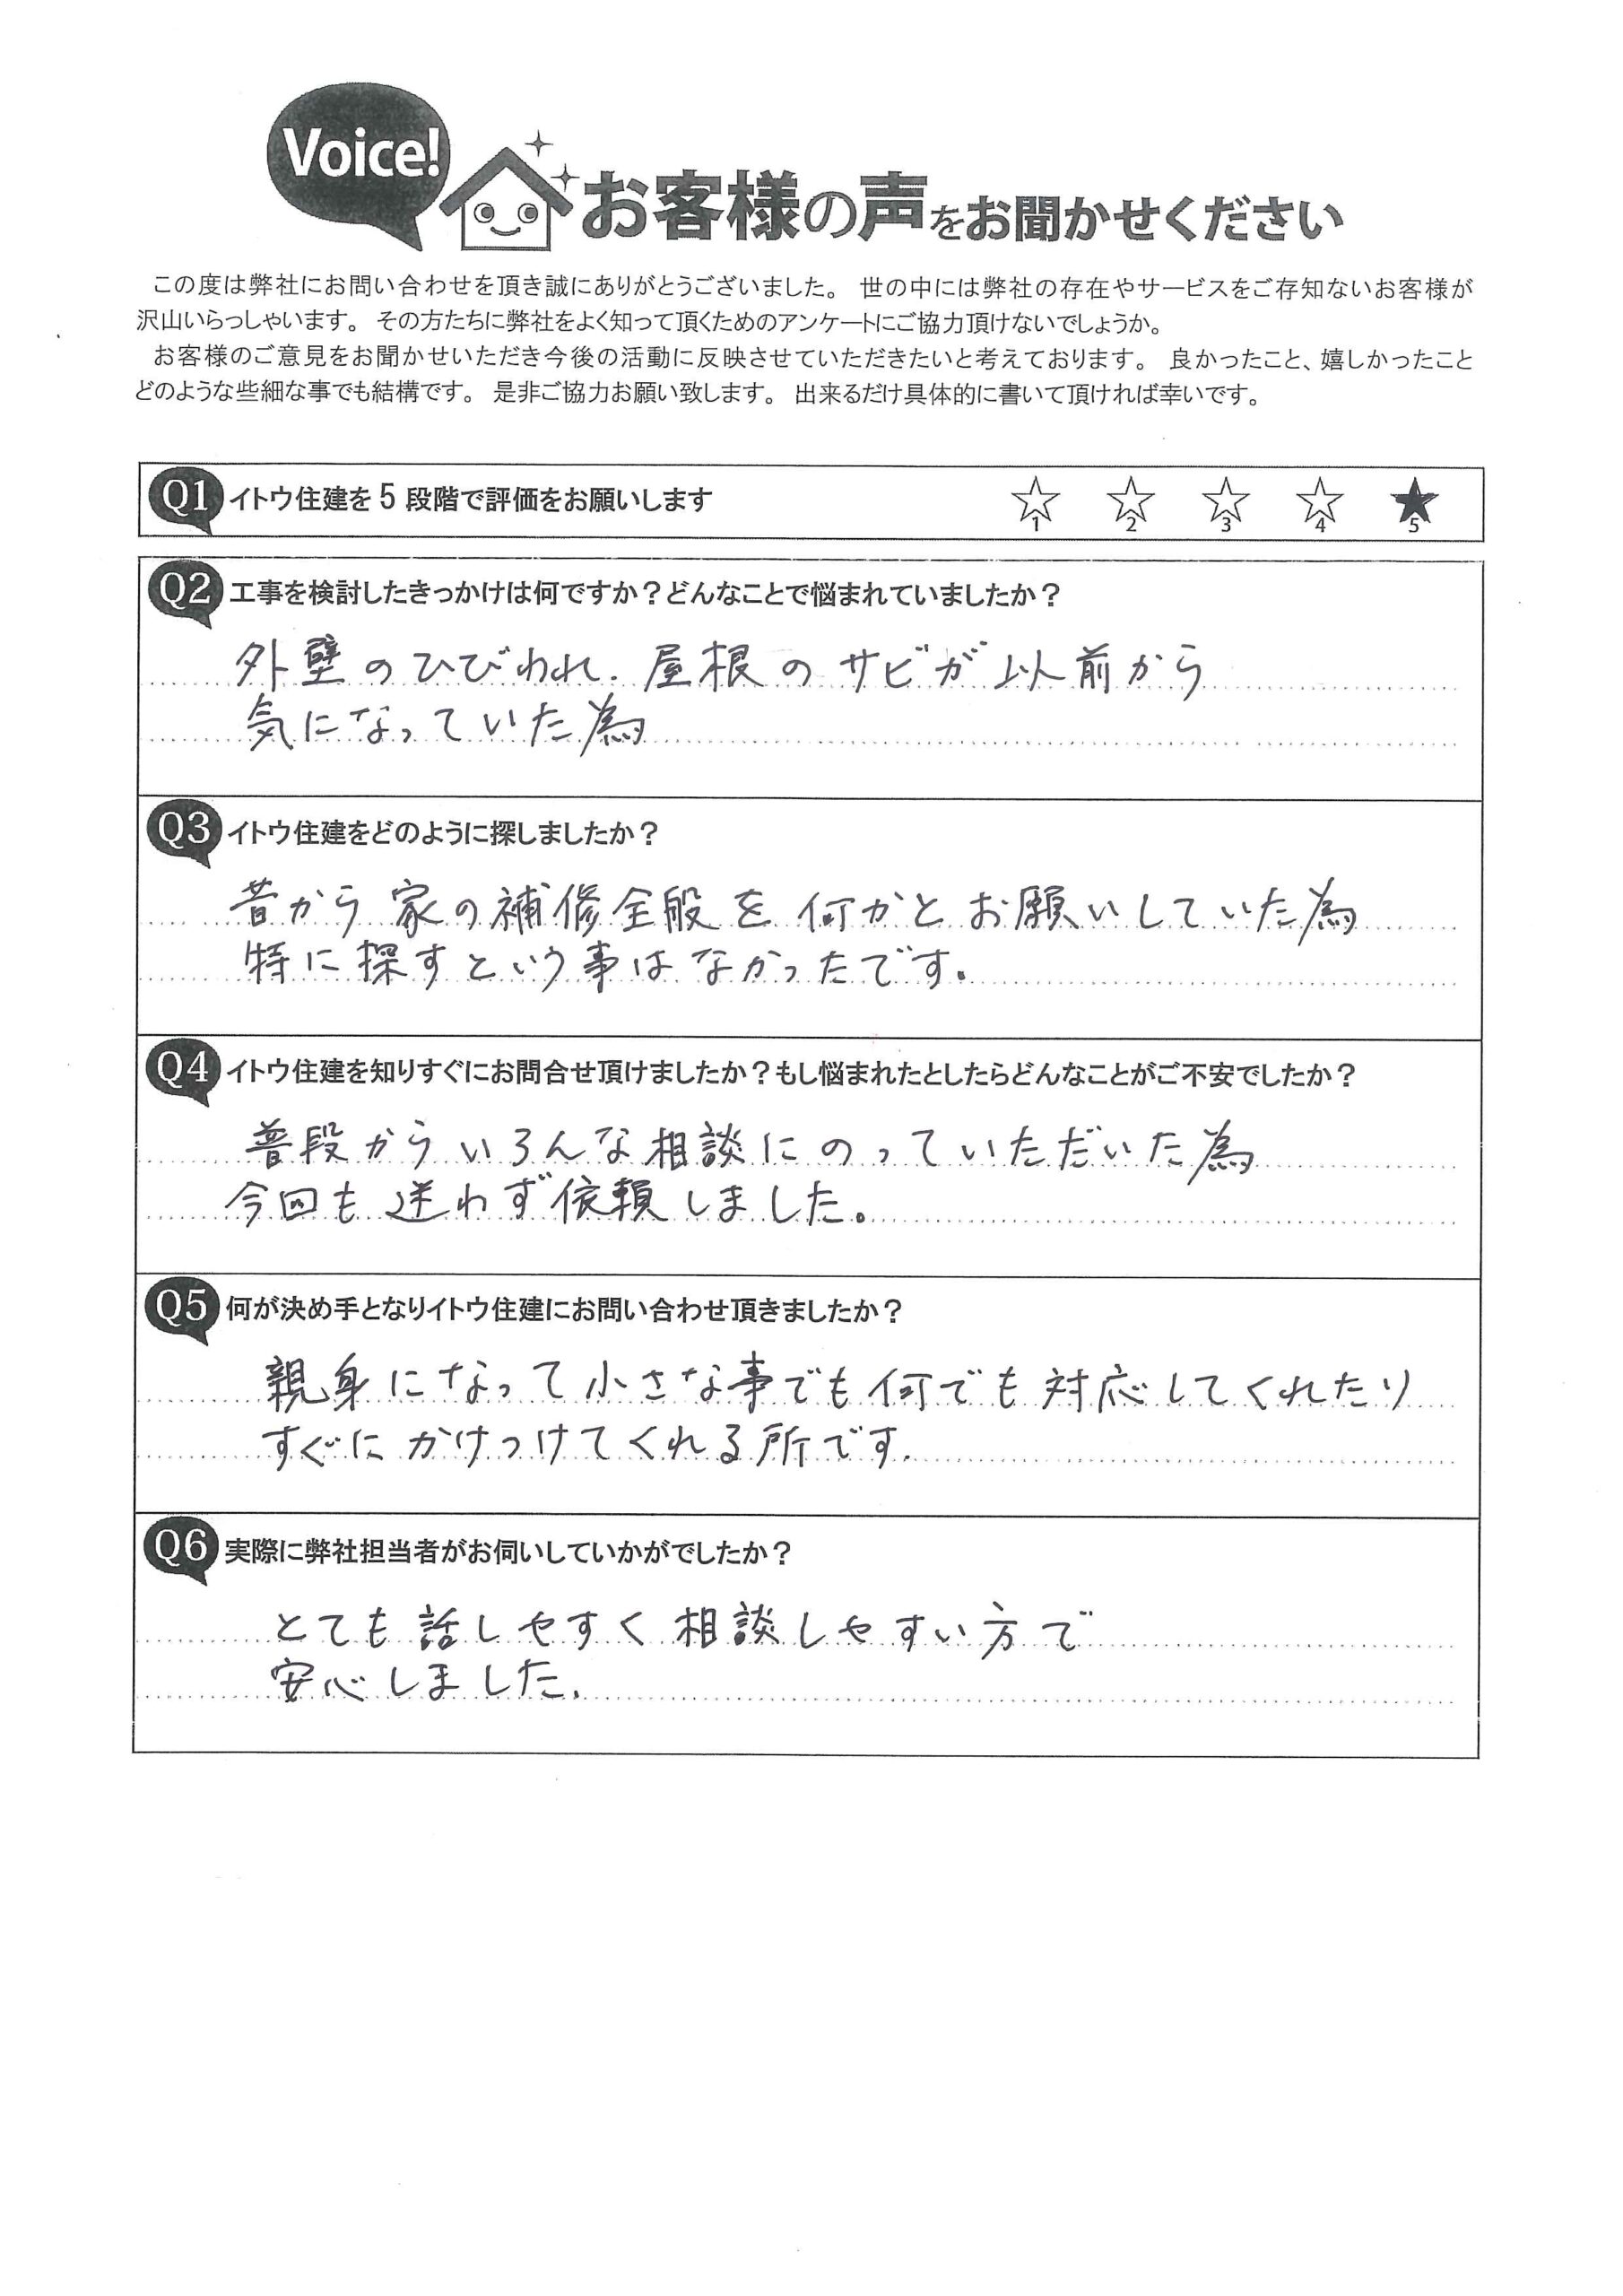 Voice!
お客様の声をお聞かせください
この度は弊社にお問い合わせを頂き誠にありがとうございました。 世の中には弊社の存在やサービスをご存知ないお客様が
沢山いらっしゃいます。 その方たちに弊社をよく知って頂くためのアンケートにご協力頂けないでしょうか。
お客様のご意見をお聞かせいただき今後の活動に反映させていただきたいと考えております。 良かったこと、嬉しかったこと
どのような些細な事でも結構です。 是非ご協力お願い致します。 出来るだけ具体的に書いて頂ければ幸いです。
Q1 イトウ住建を5段階で評価をお願いします ☆1 ☆2 ☆3 ☆4 ★5
Q2 工事を検討したきっかけは何ですか？どんなことで悩まれていましたか？
外壁のひびわれ.屋根のサビが以前から
気になっていた為
Q3 イトウ住建をどのように探しましたか？
昔から家の補修全般を何かとお願いしていた為
特に探すという事はなかったです。
Q4 イトウ住建を知りすぐにお問合せ頂けましたか？もし悩まれたとしたらどんなことがご不安でしたか？
普段からいろんな相談にのっていただいた為
今回も迷わず依頼しました。
Q5 何が決め手となりイトウ住建にお問い合わせ頂きましたか？
親身になって小さな事でも何でも対応してくれたり
すぐにかけつけてくれる所です.
Q6 実際に弊社担当者がお伺いしていかがでしたか？
とても話しやすく相談しやすい方で
安心しました.